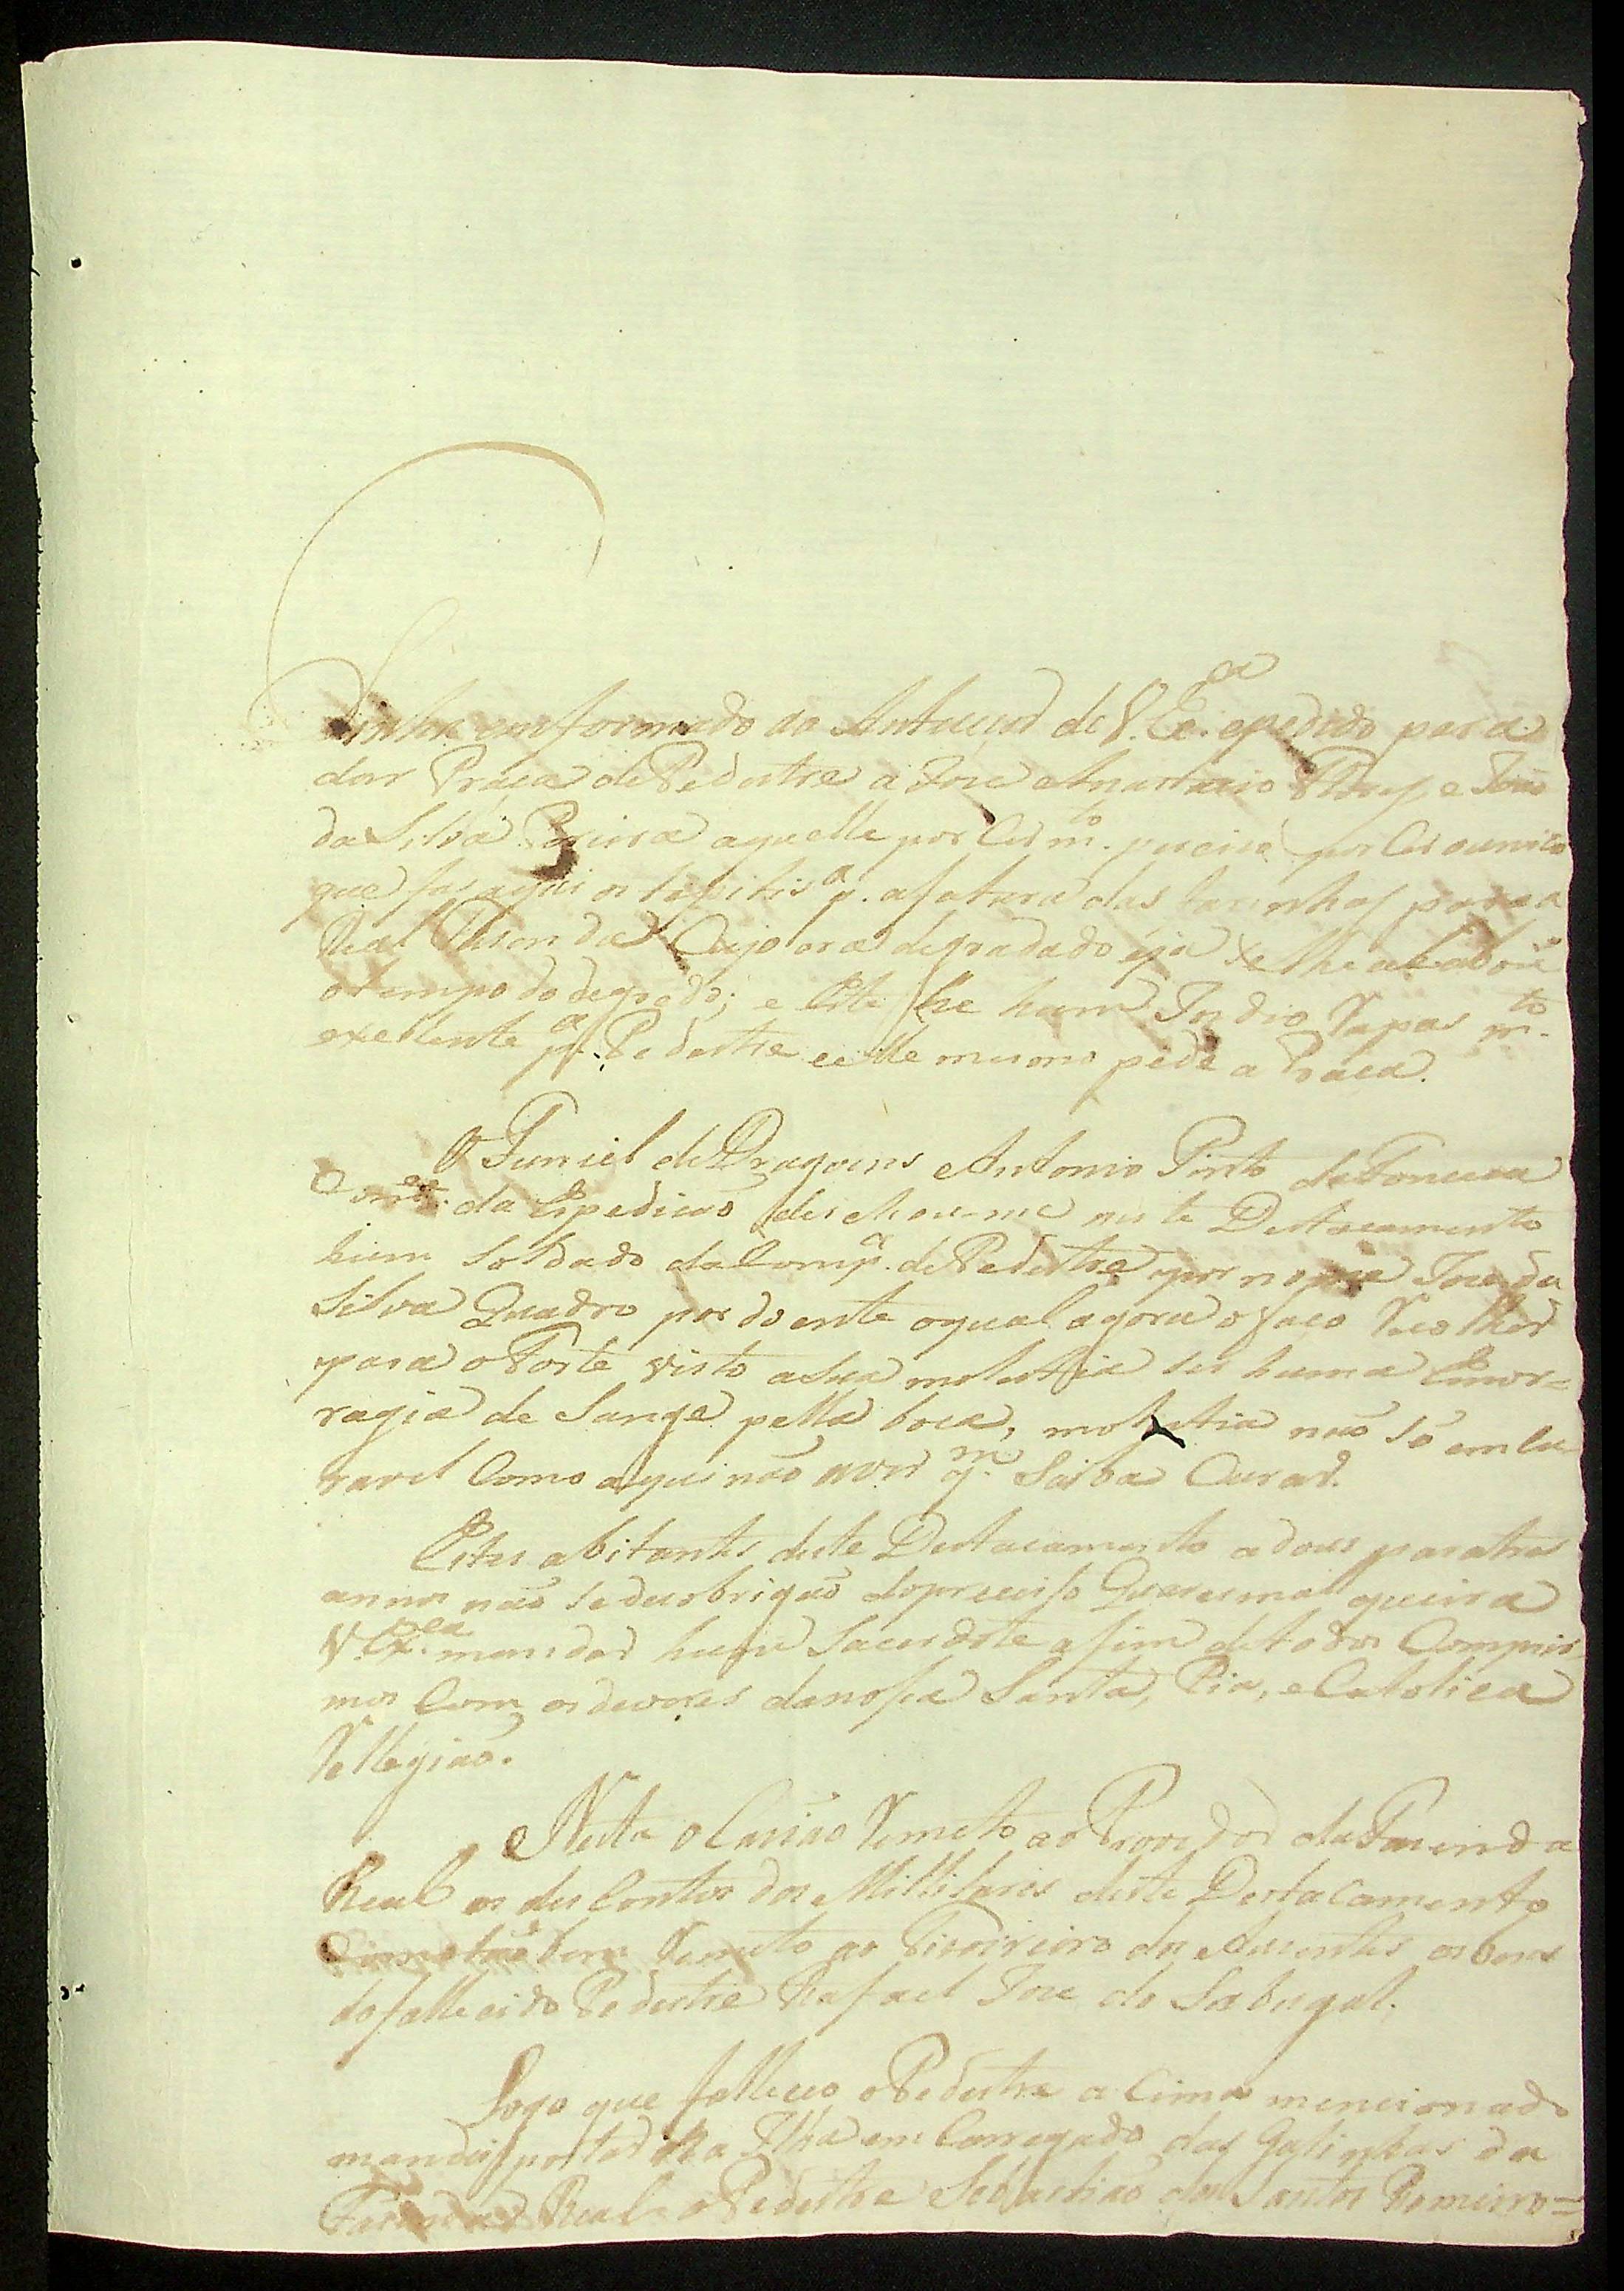 Tinha emformado ao Antecessor de V. Ex.ª epedido para
dar Praça de Pedestre a Joze Anastacio e João
da Silva Pereira aquelle por ser m.to percizo por ser ounico
que faz aqui os p.ª afatura das farinhas para a
Real Cujo era degradado eja se lhe acabou
otempo do degredo; e Este he hum Indio Rapas m.to
exellente p.ª Pedestre e elle mesmo pede a Praça.
O Furriel de Dragoens Antonio Pinto daFonceca
Com.de da Espedicaõ deichou-me neste Destacamento
hum Soldado daComp.ª de Pedestre por nome Joze da
Silva Quadro por doente oqual agora ofaço Recolher
para oForte visto asua molestia ser huma Emor=
ragia de Sange pella boca, molestia não só emcu
ravel Como aqui não aver q.m Saiba Curar.
Estes abitantes deste Destacamento a dous para tres
annos naõ sedesobrigaõ dopreceito Quaresmal queira
V. Ex.cia mandar hum Sacerdote afim detodos Comprir
mos Com osdeveres danossa Santa, Pia, e Catolica
Rellegiaõ.
Nesta oCaziaõ Remeto ao Provedor daFazenda
Real os desContos dos Millitares deste Destacamento
Como taõ bem Remeto ao Tizoireiro dos Auzentes osbens
dofallecido Pedestre Rafael Joze do Sabugal.
Logo que falleceo oPedestre a Cima mencionado
mandei postar na Ilha em Carregado das Galinhas da
Fazenda Real oPedestre Sebastiaõ dos Santos Romeiro=